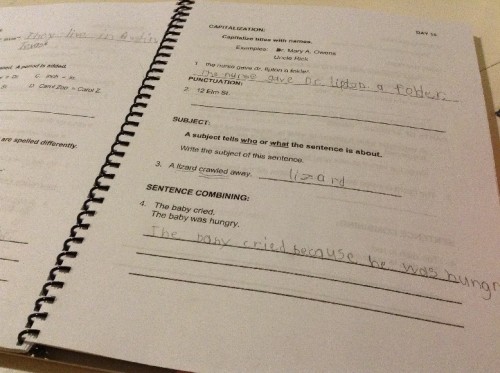 They live in a
CAPITALIZATION:
DAY 14
Capitalize titles with names.
Examples: Dr. Mary A. Owens
Uncle Rick
1. the nurse gave dr. lipton a folder.
The nurse gave Dr. lipton a folder.
PUNCTUATION:
2. 12 Elm St.
SUBJECT:
A subject tells who or what the sentence is about.
Write the subject of this sentence.
3. A lizard crawled away.
lizard
SENTENCE COMBINING:
4. The baby cried.
The baby was hungry.
The baby cried because he was hungr
A period is added.
C. Inch = In.
D) Carol Zoe = Carol Z.
are spelled differently.